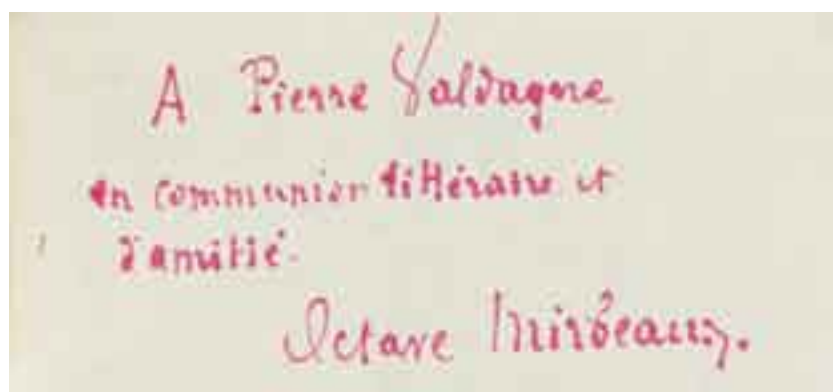 A Pierre Valdagne
en communion littéraire et
d'amitié.
Octave Mirbeau.